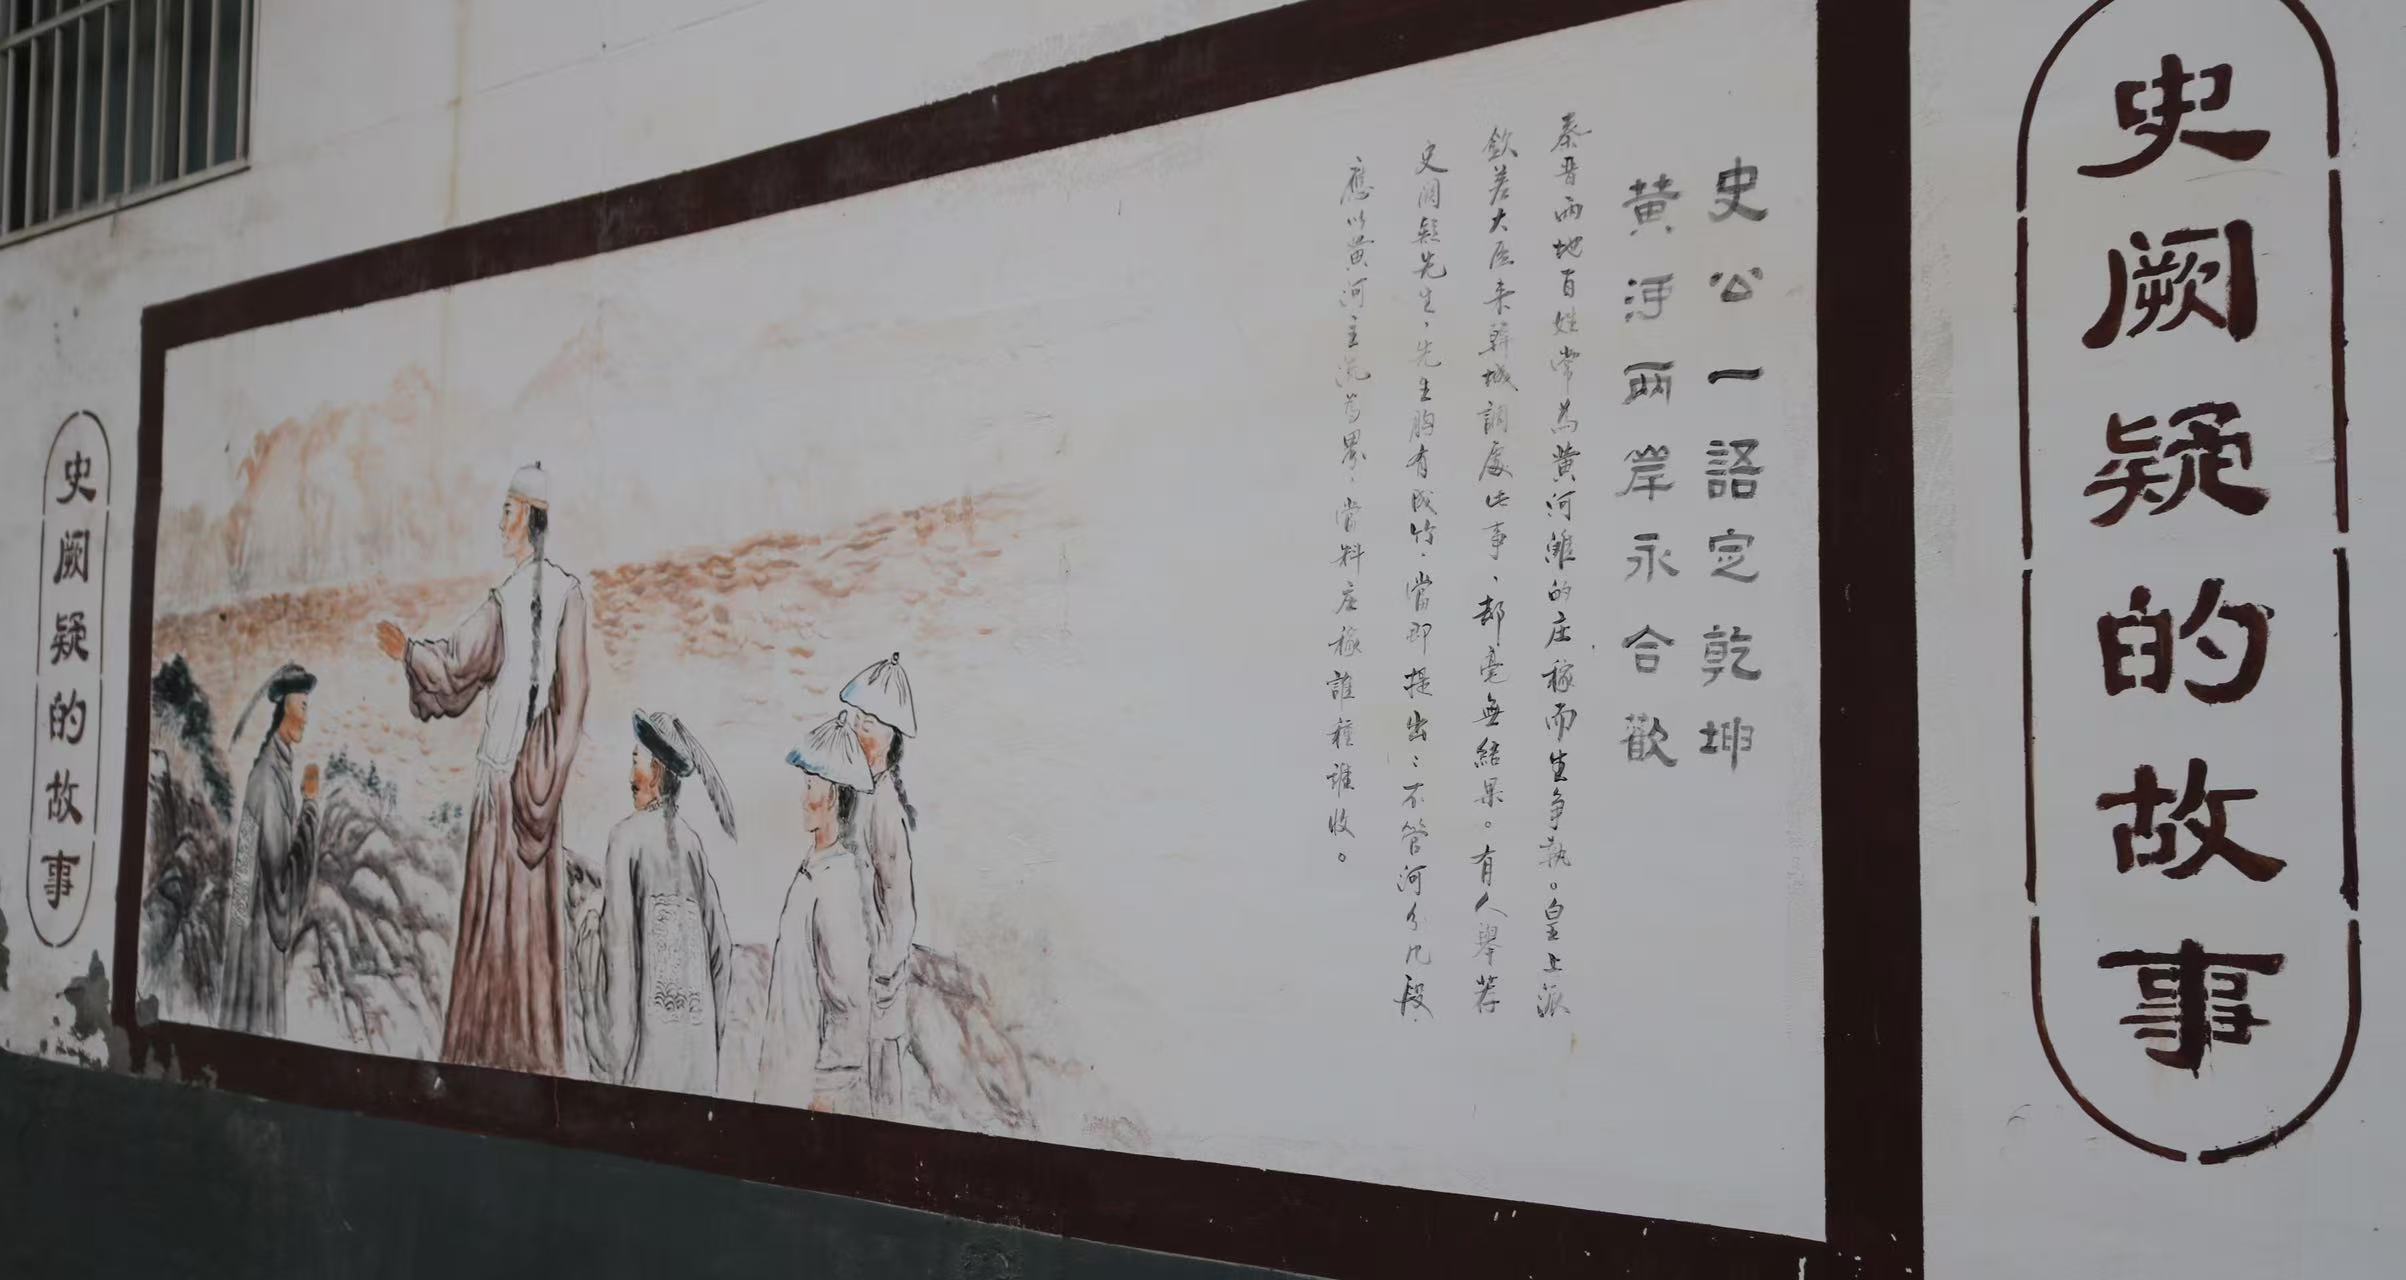 史阙疑的故事
史公一語定乾坤
黄河兩岸永合歡
秦晋两地百姓常為黄河滩的庄稼而生争执。皇上派
欽差大臣来韩城調處此事、却毫無結果。有人舉荐
史阙疑先生、先生胸有成竹、當即提出：不管河分几段、
應以黄河主流為界、當料庄稼誰種誰收。
史阙疑的故事